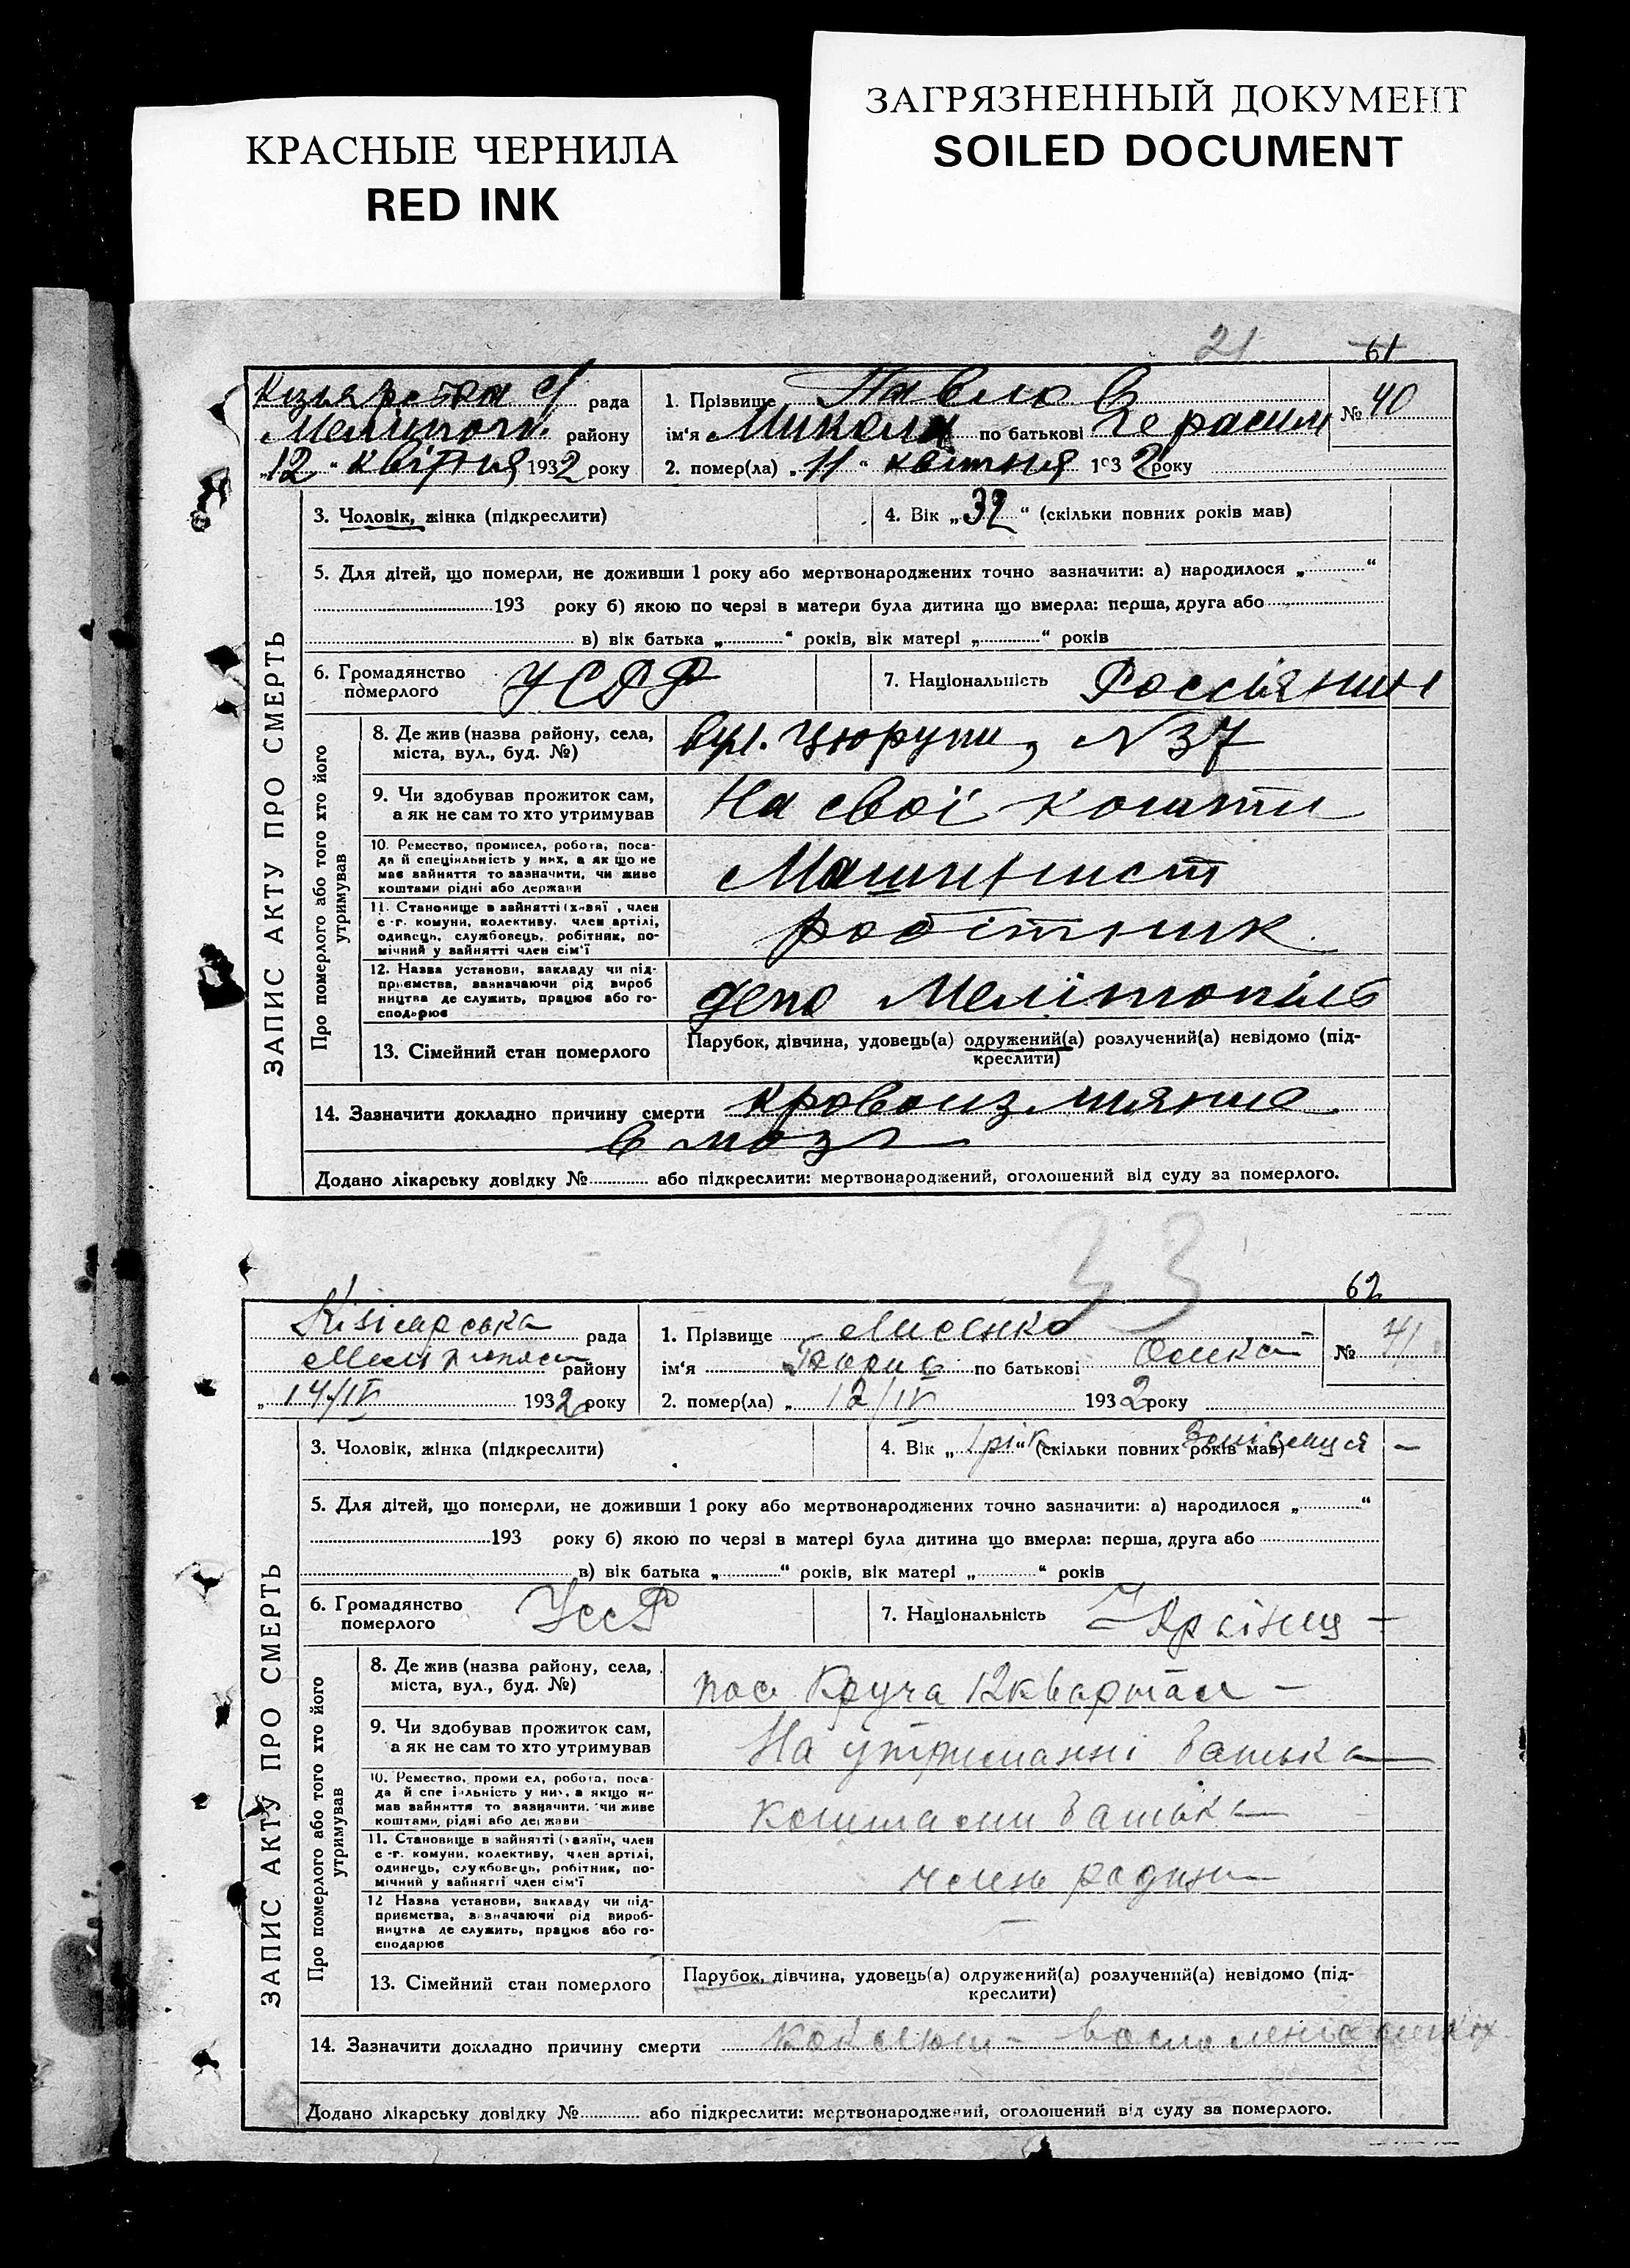 КРАСНЫЕ ЧЕРНИЛА
RED INK
ЗАГРЯЗНЕННЫЙ ДОКУМЕНТ
SOILED DOCUMENT
21 61
рада 1. Прізвище Павлов № 40
Мелітоп. району ім'я Микола по батькові Герасим
„12" квітня 1932 року 2. помер(ла) „11" квітня 1932 року
3. Чоловік, жінка (підкреслити) 4. Вік „32" (скільки повних років мав)
5. Для дітей, що померли, не доживши 1 року або мертвонароджених точно зазначити: а) народилося „ "
193 року б) якою по черзі в матери була дитина що вмерла: перша, друга або
в) вік батька „ " років, вік матері „ " років
6. Громадянство померлого УСРР 7. Національність Россіянин
ЗАПИС АКТУ ПРО СМЕРТЬ
Про померлого або того хто його утримував
8. Де жив (назва району, села, міста, вул., буд. №) вул. Цюрупи, N 37
9. Чи здобував прожиток сам, а як не сам то хто утримував На свої кошти
10. Ремество, промисел, робота, поса-
да й спеціяльність у них, а як що не
має зайняття то зазначити, чи живе
коштами рідні або держави Машиніст
11. Становище в зайнятті , член
с.-г. комуни, колективу, член артілі,
одинець, службовець, робітник, по-
мічний у зайнятті член сім'ї робітник
12. Назва установи, закладу чи під-
приємства, зазначаючи рід вироб
ництва де служить, працює або го-
сподарює депо Мелітопіль
13. Сімейний стан померлого Парубок, дівчина, удовець(а) одружений(а) розлучений(а) невідомо (під-
креслити)
14. Зазначити докладно причину смерти кровоизлияние
в мозг
Додано лікарську довідку № або підкреслити: мертвонароджений, оголошений від суду за померлого.
33 62
Кізіярська рада 1. Прізвище Лисенко № 41
району ім'я по батькові
„14/IV 1932 року 2. помер(ла) „ 12/IV 1932 року
3. Чоловік, жінка (підкреслити) 4. Вік „1 рік" (скільки повних років мав)
5. Для дітей, що померли, не доживши 1 року або мертвонароджених точно зазначити: а) народилося „ "
193 року б) якою по черзі в матері була дитина що вмерла: перша, друга або
в) вік батька „ " років, вік матері „ " років
6. Громадянство померлого УССР 7. Національність
ЗАПИС АКТУ ПРО СМЕРТЬ
Про померлого або того хто його утримував
8. Де жив (назва району, села, міста, вул., буд. №) пос Круча 12 квартал
9. Чи здобував прожиток сам, а як не сам то хто утримував На утриманні батька
10. Ремество, проми ел, робота, поса-
да й спе іальність у них, а якщо н-
мав зайняття то зазначити, чи живе
коштами рідні або держави коштами батька
11. Становище в зайнятті (хазяїн, член
с.-г. комуни, колективу, член артілі,
одинець, службовець, робітник, по-
мічний у зайнятті член сім'ї член родини
12 Назва установи, закладу чи під-
приємства, зазначаючи рід вироб-
ництва де служить, працює або го-
сподарює —
13. Сімейний стан померлого Парубок, дівчина, удовець(а) одружений(а) розлучений(а) невідомо (під-
креслити)
14. Зазначити докладно причину смерти коклюш -
Додано лікарську довідку № або підкреслити: мертвонароджений, оголошений від суду за померлого.